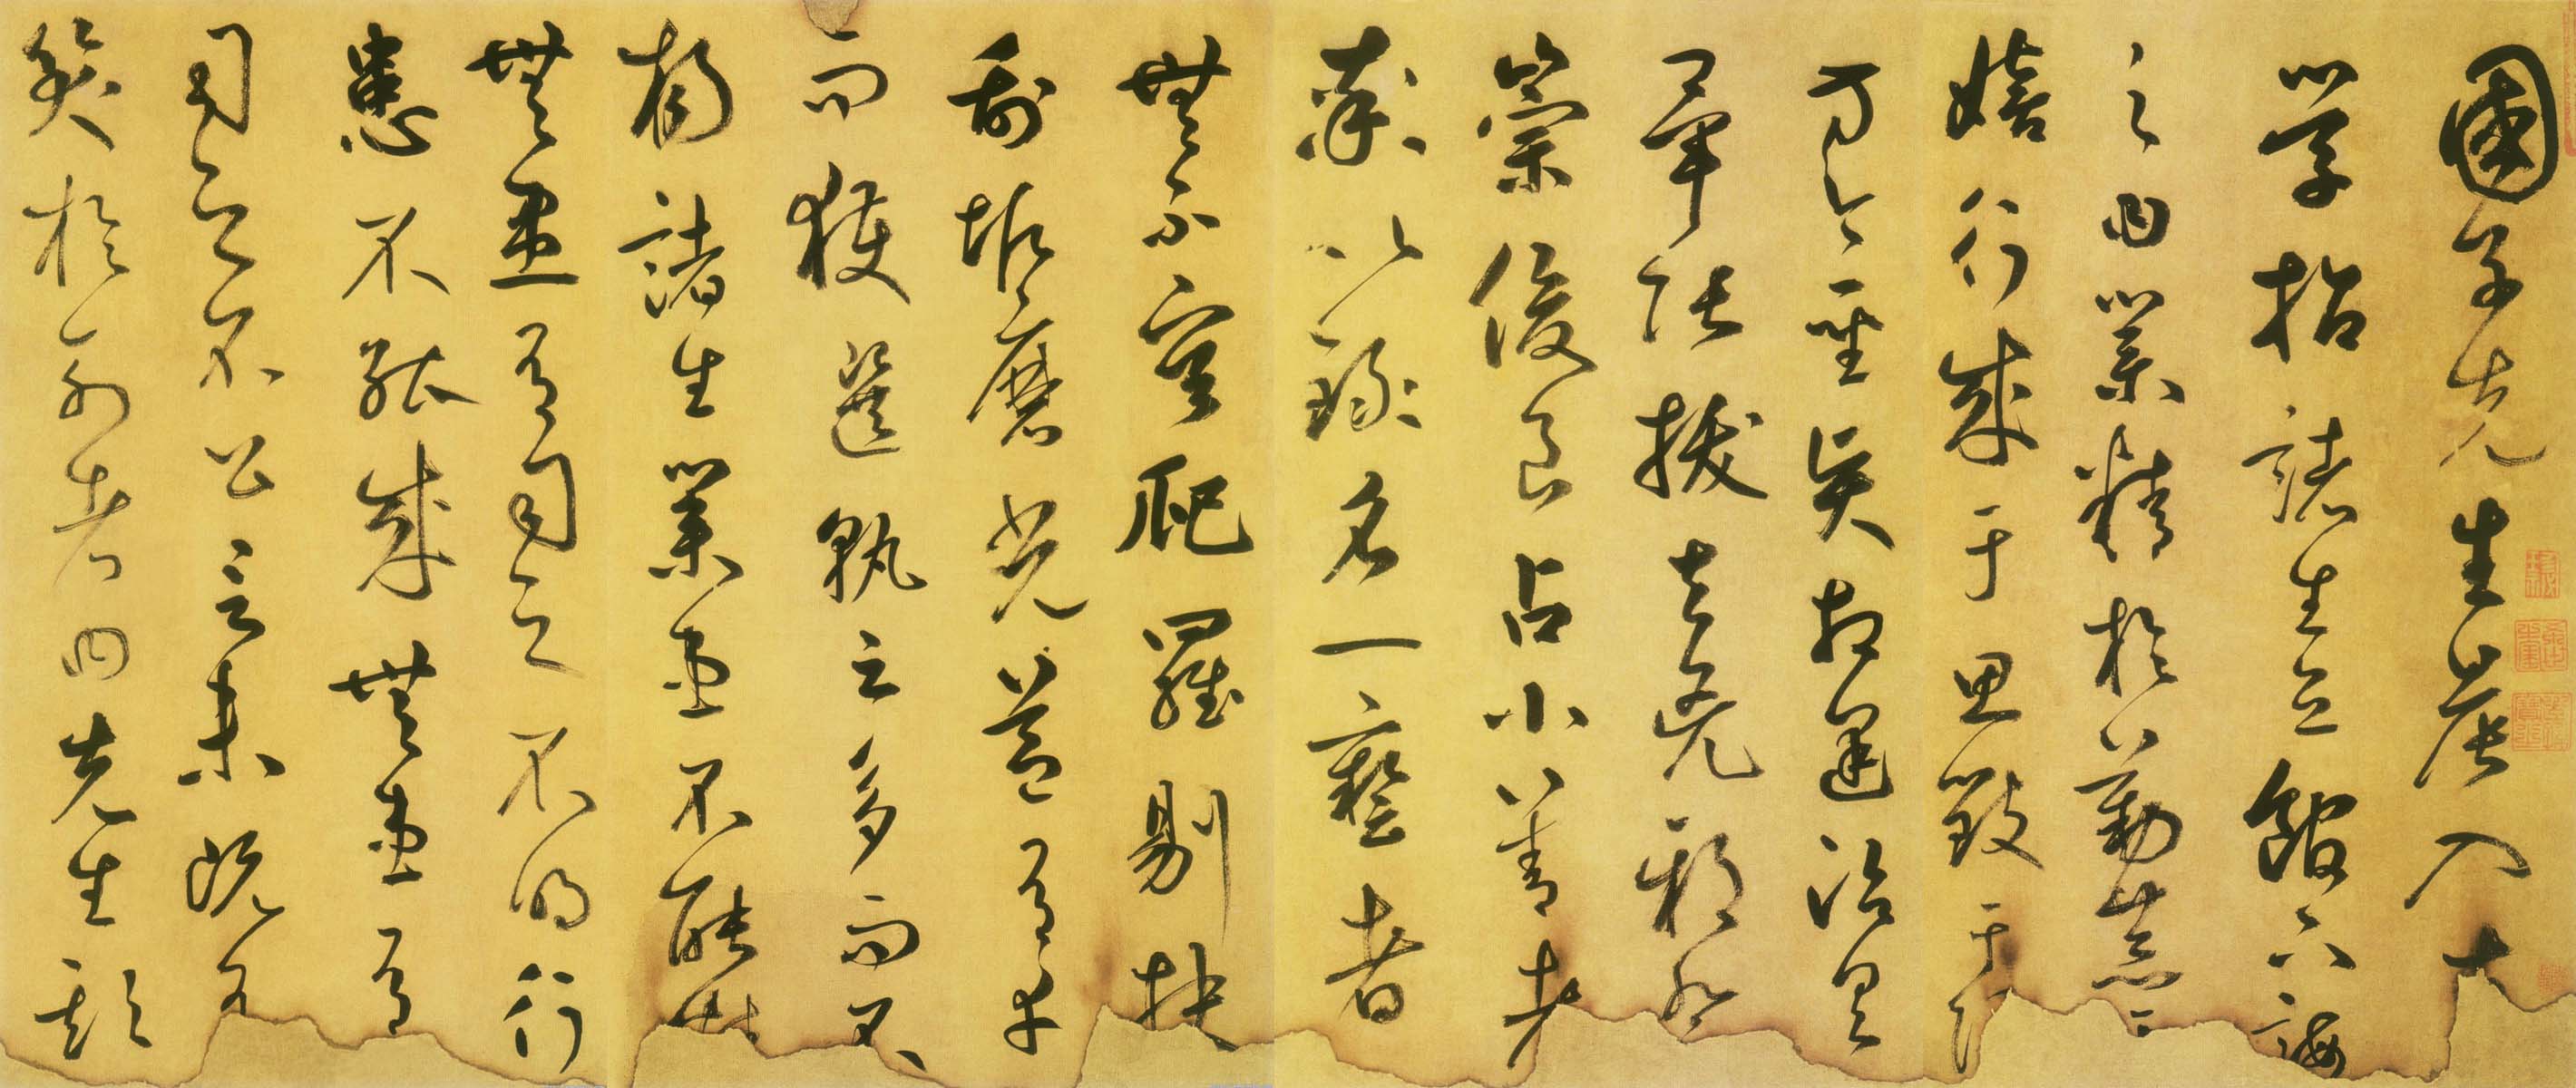 國子先生晨入大
學招諸生立館下誨
之曰業精於勤荒于
嬉行成于思毀于
方今聖賢相逢治具
畢張拔去兇邪登
崇俊良占小善者
率以錄名一藝者
無不庸爬羅剔抉
刮垢磨光蓋有幸
而獲選孰云多而不
揚諸生業患不能
無患有司之不明行
患不能成無患有
司之不公言未既有
笑於列者曰先生欺